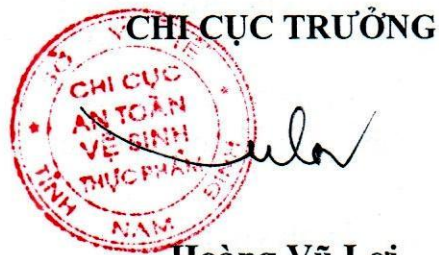 CHI CỤC TRƯỞNG
SỞ Y TẾ
CHI CỤC
AN TOÀN
VỆ SINH
THỰC PHẨM
TỈNH NAM ĐỊNH
Hoàng Vũ Lợi